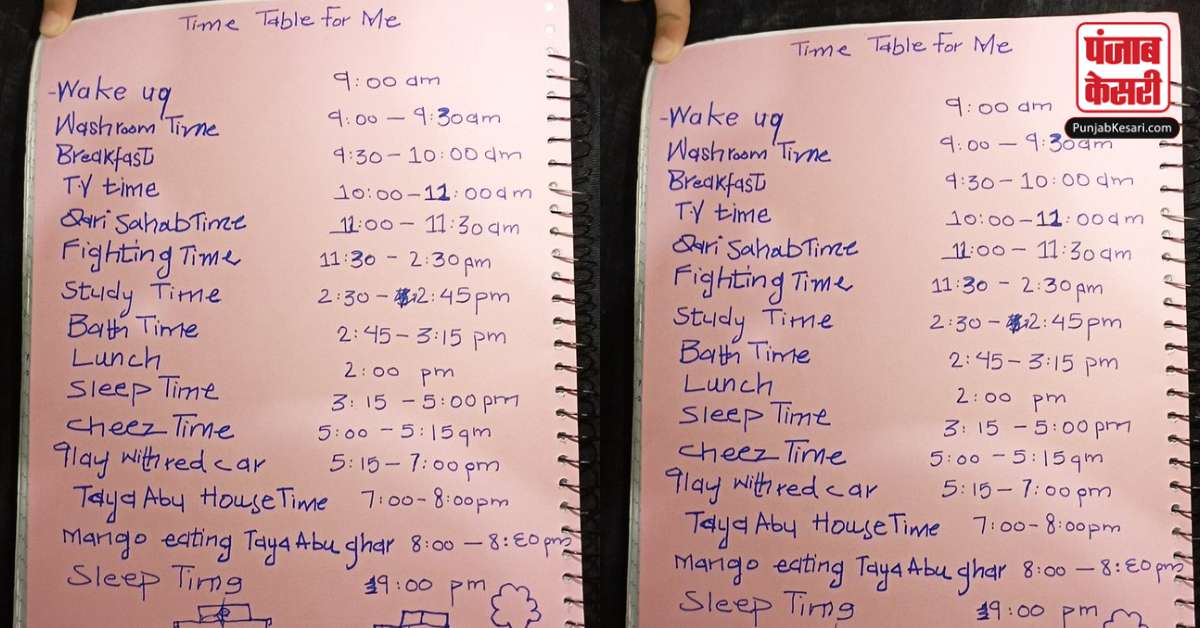 Time Table for Me
-Wake uq 9:00 am
Washroom Time 9:00 - 9:30am
Breakfast 9:30 - 10:00 am
TV time 10:00-11:00am
Qari Sahab Time 11:00 - 11:30am
Fighting Time 11:30 - 2:30pm
Study Time 2:30 - 2:45pm
Bath Time 2:45-3:15 pm
Lunch 2:00 pm
Sleep Time 3:15 - 5:00pm
Cheez Time 5:00 - 5:15qm
qlay with red car 5:15-7:00pm
Taya Abu House Time 7:00-8:00pm
Mango eating Taya Abu ghar 8:00 - 8:30pm
Sleep Timg 9:00 pm
Time Table for Me
-Wake uq 9:00 am
Washroom Time 9:00 - 9:30am
Breakfast 9:30 - 10:00 am
TV time 10:00-11:00am
Qari Sahab Time 11:00 - 11:30am
Fighting Time 11:30 - 2:30pm
Study Time 2:30 - 2:45pm
Bath Time 2:45-3:15 pm
Lunch 2:00 pm
Sleep Time 3:15 - 5:00pm
Cheez Time 5:00 - 5:15qm
qlay with red car 5:15-7:00pm
Taya Abu House Time 7:00-8:00pm
Mango eating Taya Abu ghar 8:00 - 8:30pm
Sleep Timg 9:00 pm
पंजाब
केसरी
PunjabKesari.com